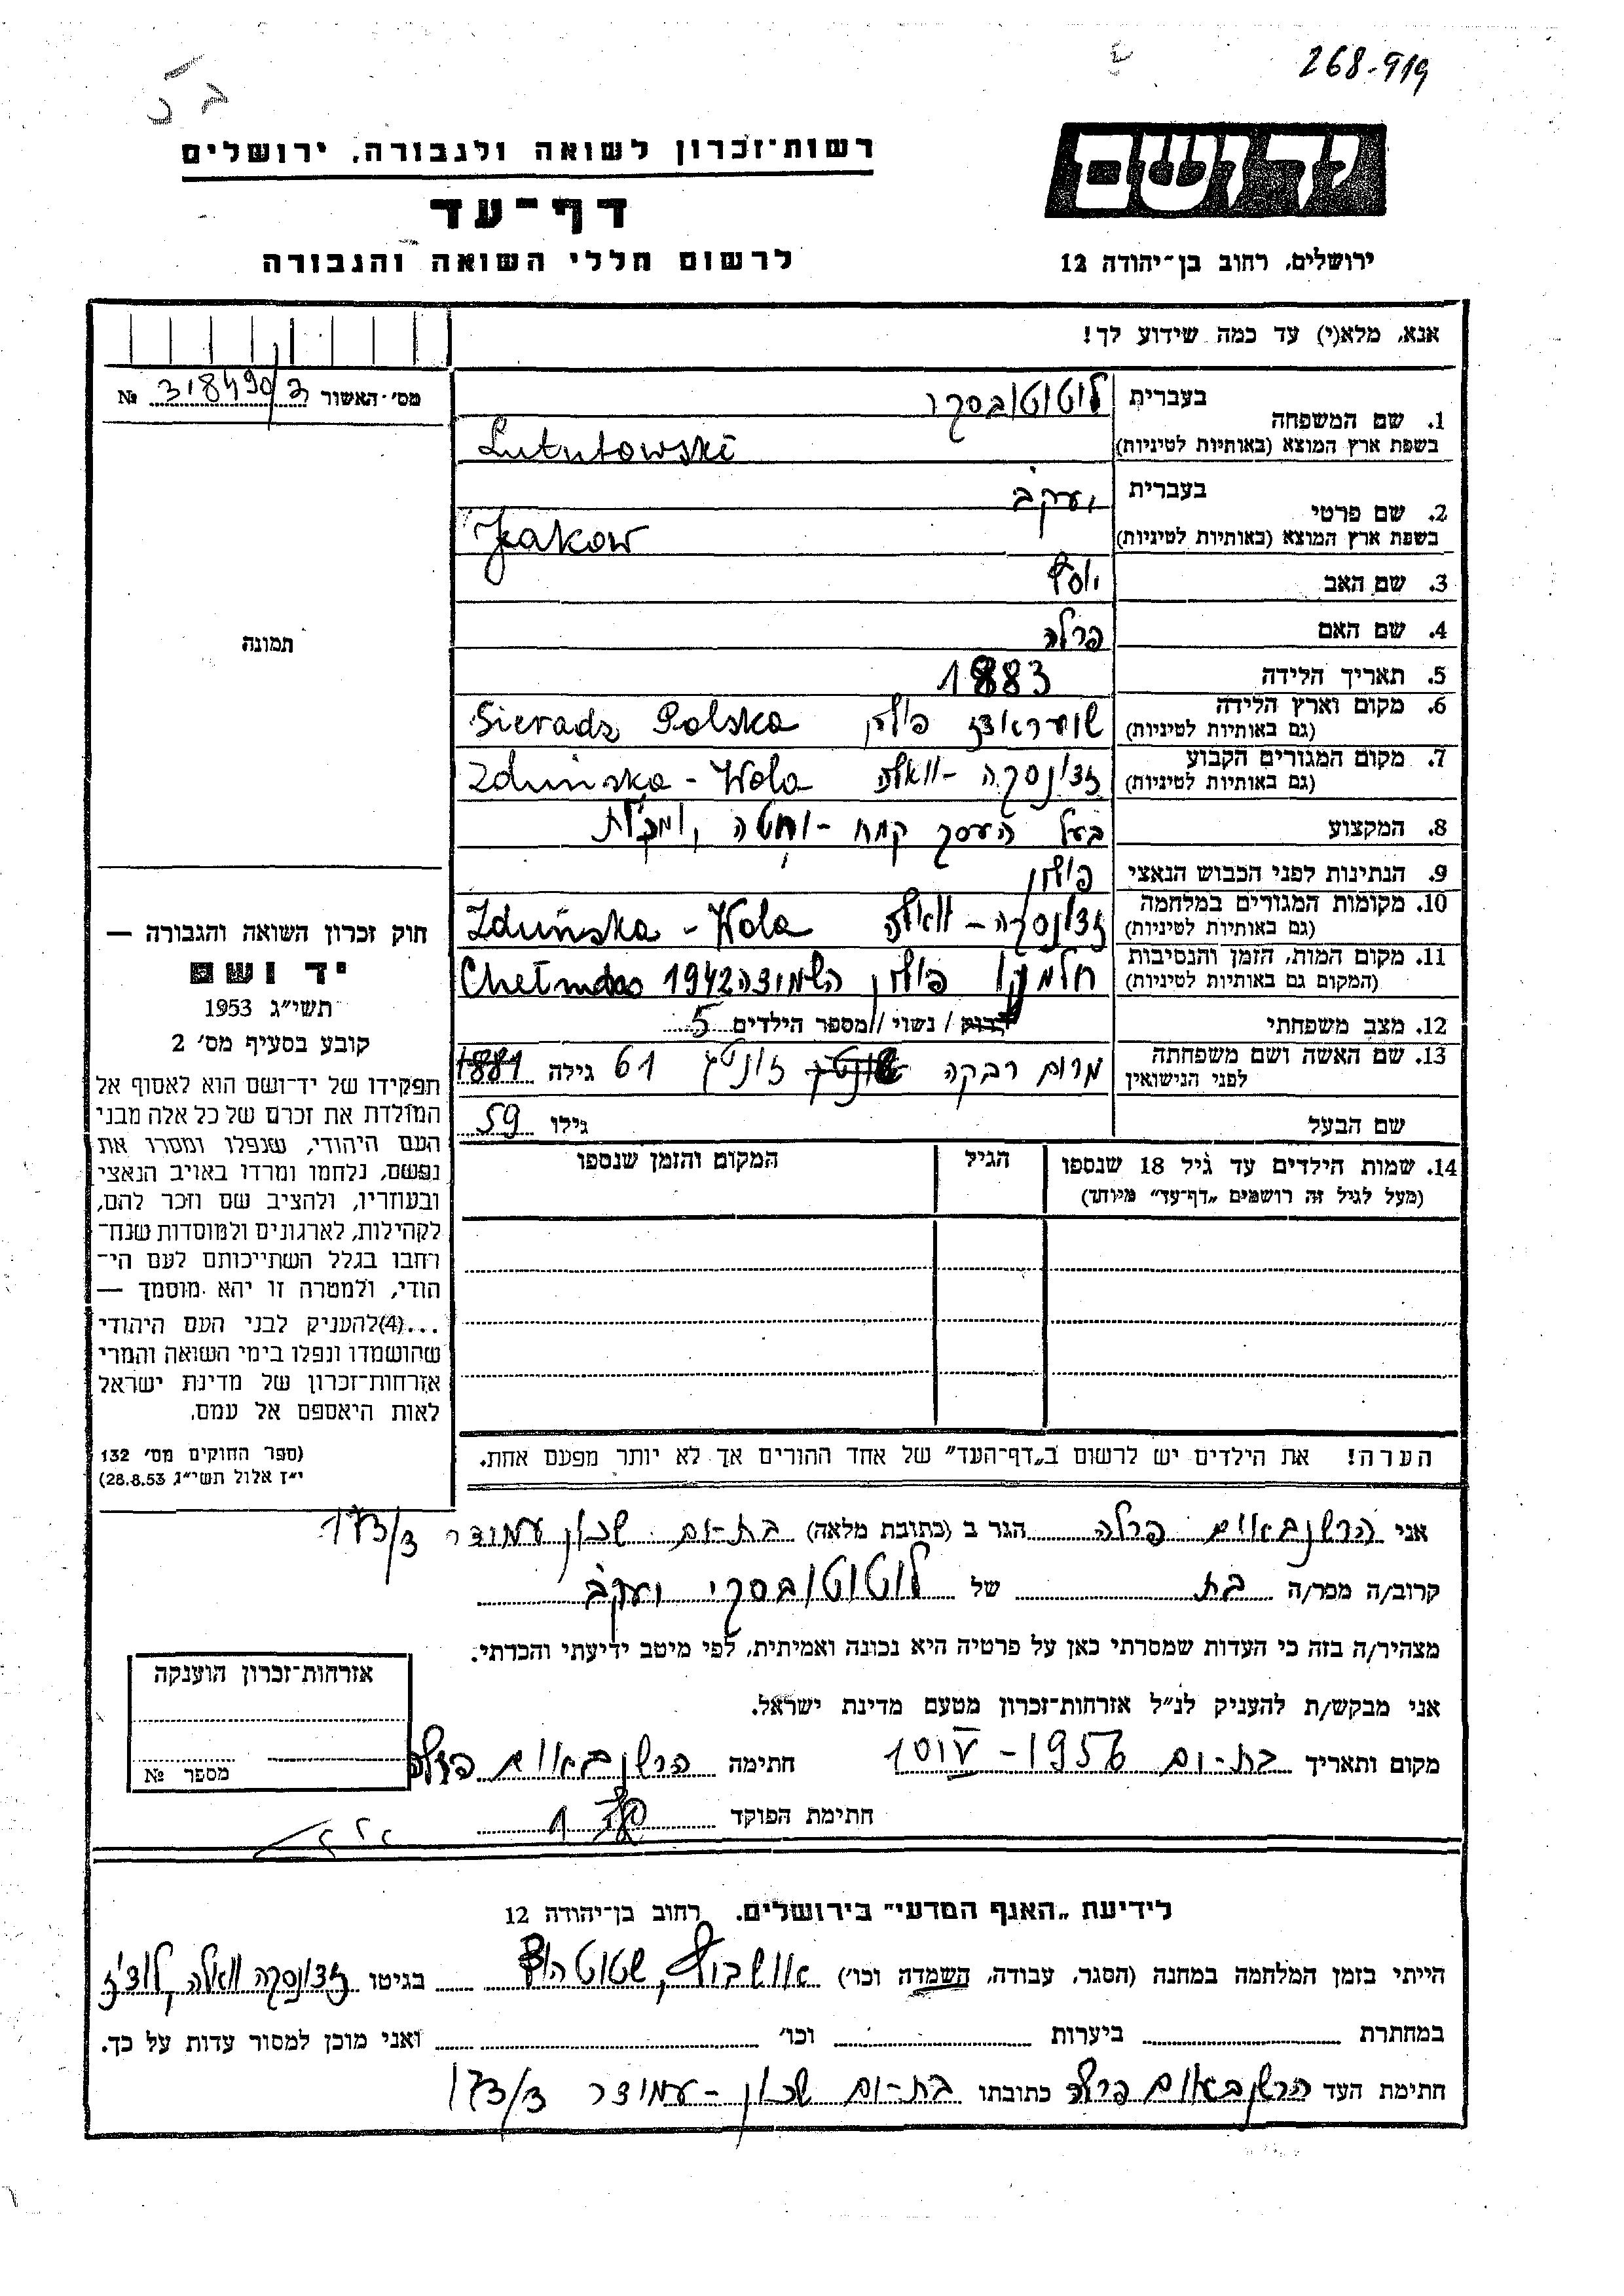 268-919
רשות־זכרון לשואה ולגבורה, ירושלים
יד ושם
דף־עד
לרשום חללי השואה והגבורה
ירושלים, רחוב בן־יהודה 12
אנא, מלא(י) עד כמה שידוע לך!
מס׳־האשור 318490/3 №
1. שם המשפחה בעברית לוטוטובסקי
בשפת ארץ המוצא (באותיות לטיניות) Lututowski
2. שם פרטי בעברית יעקב
בשפת ארץ המוצא (באותיות לטיניות) Jakow
3. שם האב יוסף
4. שם האם פרלה
תמונה
5. תאריך הלידה 1883
6. מקום וארץ הלידה (גם באותיות לטיניות) פולין Sieradz Polska
7. מקום המגורים הקבוע (גם באותיות לטיניות) זדונסקה-וואלה Zduńska-Wola
8. המקצוע בעל העסק קמח -וחטה
9. הנתינות לפני הכבוש הנאצי פולין
10. מקומות המגורים במלחמה (גם באותיות לטיניות) זדונסקה-וואלה Zduńska-Wola
11. מקום המות, הזמן והנסיבות (המקום גם באותיות לטיניות) חלמנו פולין 1942
12. מצב משפחתי רווק / נשוי / מספר הילדים 5
13. שם האשה ושם משפחתה לפני הנישואין מרים רבקה זונטג 61 גילה 1881
שם הבעל גילו 59
14. שמות הילדים עד גיל 18 שנספו (מעל לגיל זה רושמים „דף־עד״ מיוחד) הגיל המקום והזמן שנספו
חוק זכרון השואה והגבורה —
יד ושם
תשי״ג 1953
קובע בסעיף מס׳ 2
תפקידו של יד־ושם הוא לאסוף אל
המולדת את זכרם של כל אלה מבני
העם היהודי, שנפלו ומסרו את
נפשם, נלחמו ומרדו באויב הנאצי
ובעוזריו, ולהציב שם וזכר להם,
לקהילות, לארגונים ולמוסדות שנח־
רחבו בגלל השתייכותם לעם הי־
הודי, ולמטרה זו יהא מוסמך —
...(4)להעניק לבני העם היהודי
שהושמדו ונפלו בימי השואה והמרי
אזרחות־זכרון של מדינת ישראל
לאות היאספם אל עמם.
(ספר החוקים מס׳ 132
י״ז אלול תשי״ג 28.8.53)
הערה! את הילדים יש לרשום ב„דף־העד״ של אחד ההורים אך לא יותר מפעם אחת.
אני הרשנבאום פרלה הגר ב (כתובת מלאה) בת-ים שכון עמידר 173/3
קרוב/ה מפר/ה בת של לוטוטובסקי יעקב
מצהיר/ה בזה כי העדות שמסרתי כאן על פרטיה היא נכונה ואמיתית, לפי מיטב ידיעתי והכרתי.
אני מבקש/ת להעניק לנ״ל אזרחות־זכרון מטעם מדינת ישראל.
מקום ותאריך בת-ים 1956 חתימה הרשנבאום פרלה
חתימת הפוקד
אזרחות־זכרון הוענקה
מספר №
לידיעת „האגף המדעי״ בירושלים, רחוב בן־יהודה 12
הייתי בזמן המלחמה במחנה (הסגר, עבודה, השמדה וכו׳) אושביץ, שטוטהוף בגיטו זדונסקה וואלה, לודז׳
במחתרת ביערות וכו׳ ואני מוכן למסור עדות על כך.
חתימת העד הרשנבאום פרלה כתובתו בת-ים שכון-עמידר 173/3